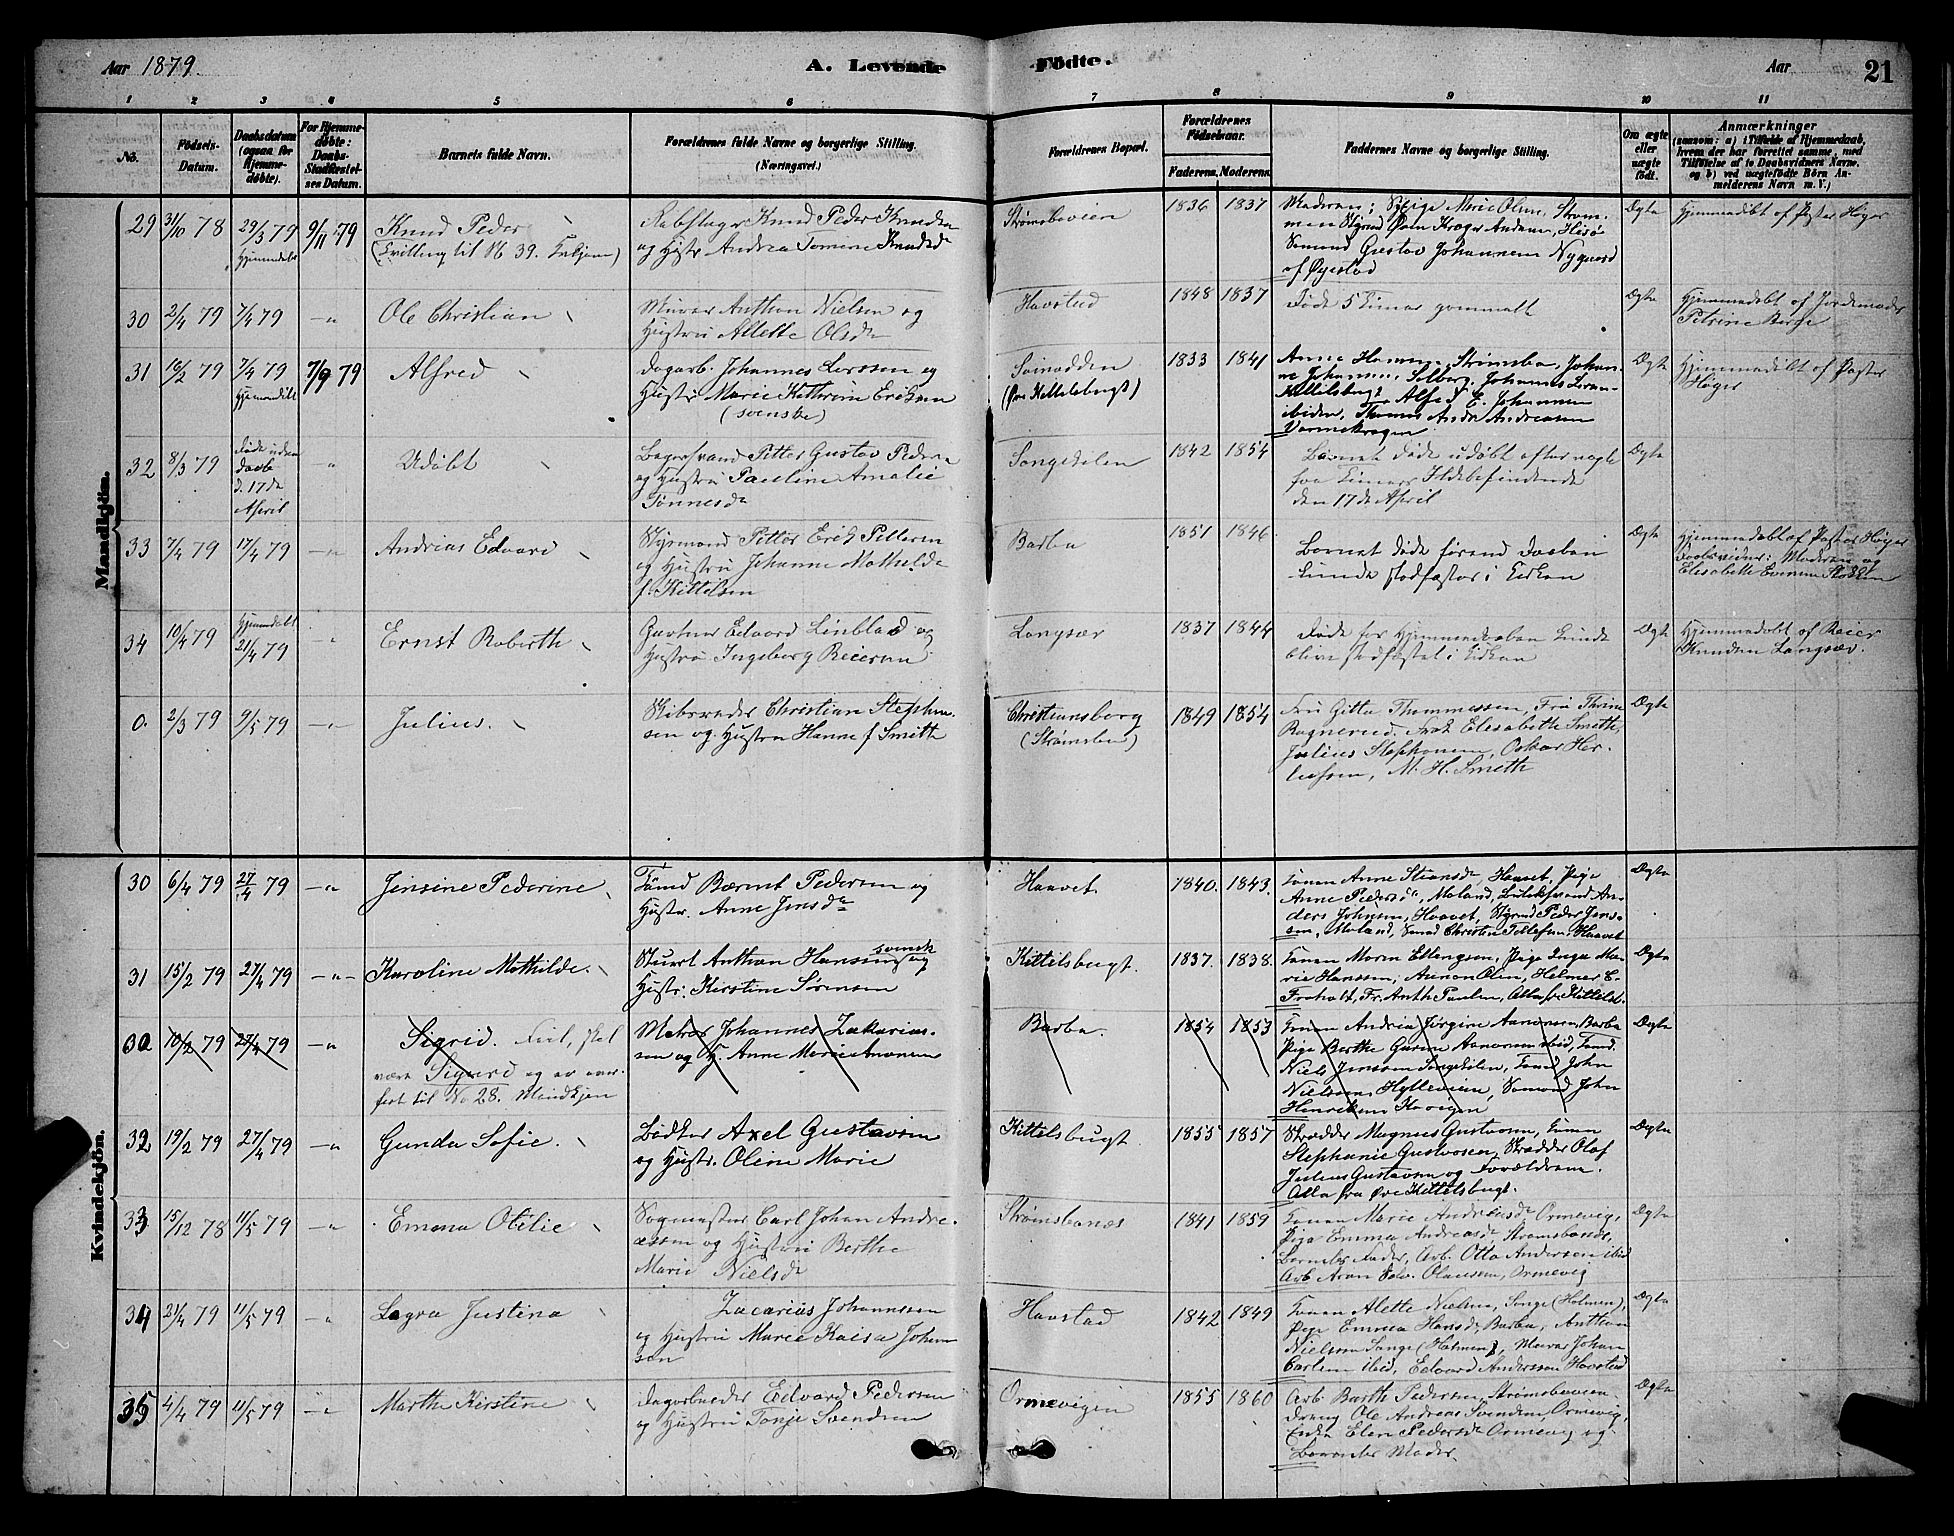 Aar 1879. A. Levende Födte. Aar 21
1 2 3 4 5 6 7 8 9 10 11
No. Födsels-Datum. Daabsdatum (ogsaa for Hjemme-döbte). For Hjemme-døbte: Daabs-Stadfæstel-ses Datum. Barnets fulde Navn. Forældrenes fulde Navne og borgerlige Stilling. (Næringsvei.) Forældrenes Bopæl. Forældrenes Födselsaar. Faderens. Moderens. Faddernes Navne og borgerlige Stilling. Om ægte eller uægte födt. Anmærkninger
(saasom: a) i Tilfælde af Hjemmedaab,
hvem der har forrettet samme, med
Tilføielse af to Daabsvidners Navne,
og b) ved uægtefödte Börn An-
melderens Navn m. V.)
Mandkjön.
29 31/10 78 29/3 79 Hjemmedøbt 9/11 79 Knud Peder
(Tvilling til N 39. Kvkjøn)
Rebslager Knud Peder Knudsen
og Hustr Andrea Tomine Knudsd
Strømsboveien 1836 1837
Moderen; Pige Marie Olsen, Strøm-
men
Sømand Gustav Johannesen Nygaard
af Øyestad
Ægte Hjemmedøbt af Pastor Høyer
30 2/4 79 2/4 79 -"- Ole Christian
Murer Anthon Nielsen og
Hustru Allette Olsdr
Havstad 1848 1837 Døde 5 Timer gammelt Ægte
Hjemmedøbt af Jordemoder
Petrine Berge
31 16/2 79 7/4 79 Hjemmedøbt 7/9 79 Alfred
Dagarb. Johannes Larsson og
Hustr. Marie Kathrine Eriksen
(svenske)
Songodden
(Øvr Kittelsbugt)
1833 1841
Anne Hansen, Strømsbo, Johan-
ne Johannesen, Solberg, Johannes
Kittelsbugt, Alfred E. Johannesen
ibiden, Thomas Andr Andreasen
Varmekrogen
Ægte Hjemmedøbt af Pastor
Høyer
32 8/3 79 Døde uden
Daab
d. 17de
April -"- Udøbt
Bøgersvend Petter Gustav Peders
og Hustru Pauline Amalie
Tønnesdr
Songekilen 1842 1854
Barnet døde udøbt efter nogle
faa Timers Ildebefindende
den 17de April
Ægte
33 7/4 79 17/4 79 -"- Andrias Edvard
Styrmand Petter Erik Pettersen
og Hustru Johanne Mathilde
f. Kittelsen
Barbu 1851 1846
Barnet døde førend Daaben
kunde stadfæstes i Kirken
Ægte Hjemmedøbt af Pastor Høyer
Daabsvidner: Moderen og
Elisabeth Evensen Stokken
34 10/4 79 Hjemmedøbt 21/4 79 -"- Ernst Roberth
Gartner Edvard Linblad og
Hustru Ingeborg Reiersen
Langsær 1837 1844
Døde før Hjemmedaaben kunde
blive stadfæstet i Kirken
Ægte Hjemmedøbt af Reier
Knudsen Langsær.
0. 2/3 79 9/5 79 -"- Julius.
Skibsreder Christian Stephen-
sen og Hustru Hanne f Smith
Christiansborg
(Strømsbu)
1849 1854
Fru Gitta Thommessen, Fru Thrine
Elisabeth Smith,
Julius Stephensen, Oskar Her-
lufsen, M. H. Smith
Ægte
Kvindekjön.
30 6/4 79 27/4 79 -"- Jensine Pederine
Tømmd Bærnt Pedersen og
Hustr. Anne Jensdr
Haavet 1840. 1843.
Konen Anne Stiansdr, Haavet, Pige
Anne Pedersdr, Moland, An-
ders Johnsen, Haavet, Styrmd Peder Jens-
sen, Moland, Sømd Christen Tellefsen, Haavet
Ægte
31 15/2 79 27/4 79 -"- Karoline Mathilde.
Stuert Anthon Hanssen svensk og
Hustr. Kirstine Sørensen
Kittelsbugt. 1837. 1838.
Konen Maren Ellingsen, Pige Inga Ma-
rie Hanssen, Aanon Olsen, Helmer E.
Froholt, Fr. Anth. Paulsen, Alle fr Kittelsb.
Ægte
30 10/2 79 27/4 79 -"- Sigrid. Feil, skal
være Sigurd og er over-
ført til No 28. Mandkjøn
Matros Johannes Zakarias-
sen og H. Anne Marie Anonsen
Barbu. 1854 1853
Konen Andrea Jørgine Aanonsen, Barbu
Pige Berthe Gurine Aanonsen ibid, Tømd.
Niels Jenssen Songekilen, Tømd John
Nielssen, Hylleveien, Sømand John
Henriksen Kovigen
Ægte
32 19/2 79 27/4 79 -"- Gunda Sofie.
Bødker Axel Gustavsen
og Hustr. Oline Marie
Kittelsbugt. 1855 1857
Skrædder Magnus Gustavsen, Konen
Stephanie Gustavsen, Skrædder Olaf
Julius Gustavsen og Forældrene.
Alle fra Øvr Kittelsbugt.
Ægte
33 15/12 78 11/5 79 -"- Emma Otilie
Sagmester Carl Johan Andre-
assen og Hustru Berthe
Marie Nielsdr
Strømsbonæs 1841 1859
Konen Marie Andreasdr Ormevig,
Pige Emma Andreasdr, Strømsbonæs,
Barnets Fader, Arb. Otto Andersen ibid
Arb Aron Sølv. Olaussen, Ormevig
Ægte
34 21/4 79 11/5 79 -"- Lagra Justina
Zacarias Johannssen
og Hustru Marie Kaisa Johan-
sen
Havstad 1842 1849
Konen Alette Nielsen, Songe (Holmen),
Pige Emma Hansdr, Barbu, Anthon
Nielsen Songe (Holmen), Murer Johan
Carlsen ibid, Edvard Andersson Havstad
Ægte
35 4/4 79 11/5 79 -"- Marthe Kirstine
Dagarbeider Edvard Pedersen
og Hustru Tonje Svendsen
Ormevigen 1855 1860
Arb. Barth Pedersen, Strømsboveien
Dreng Ole Andreas Svendsen, Ormevig,
Enke Elen Pedersdr Ormevig og
Barnets Moder.
Ægte